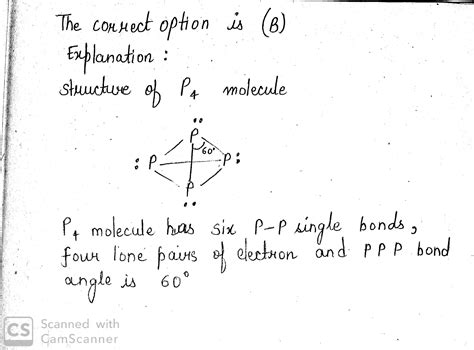 The correct option is (B)
Explanation :
structure of P4 molecule
P
60°
: P P :
P
P4 molecule has six P-P single bonds,
four lone pairs of electron and P P P bond
angle is 60°
CS Scanned with
CamScanner